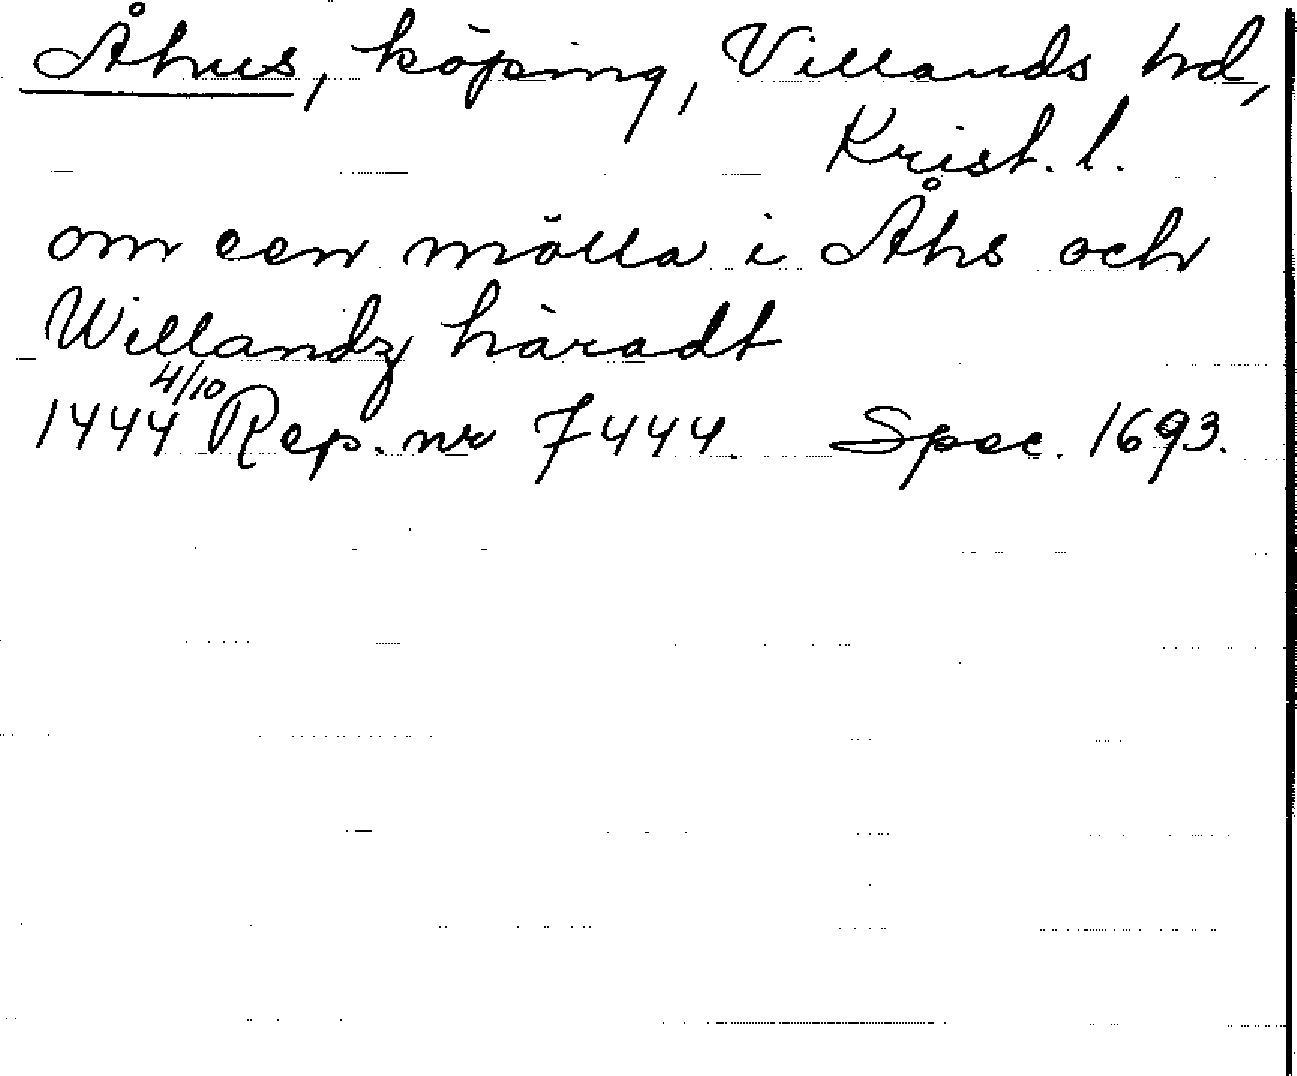 Åhus, köping, Villands hd,
Krist. l.
om een mölla i Åhs och
Willandz häradt
1444 4/10 Rep. nr 7444. Spec. 1693.